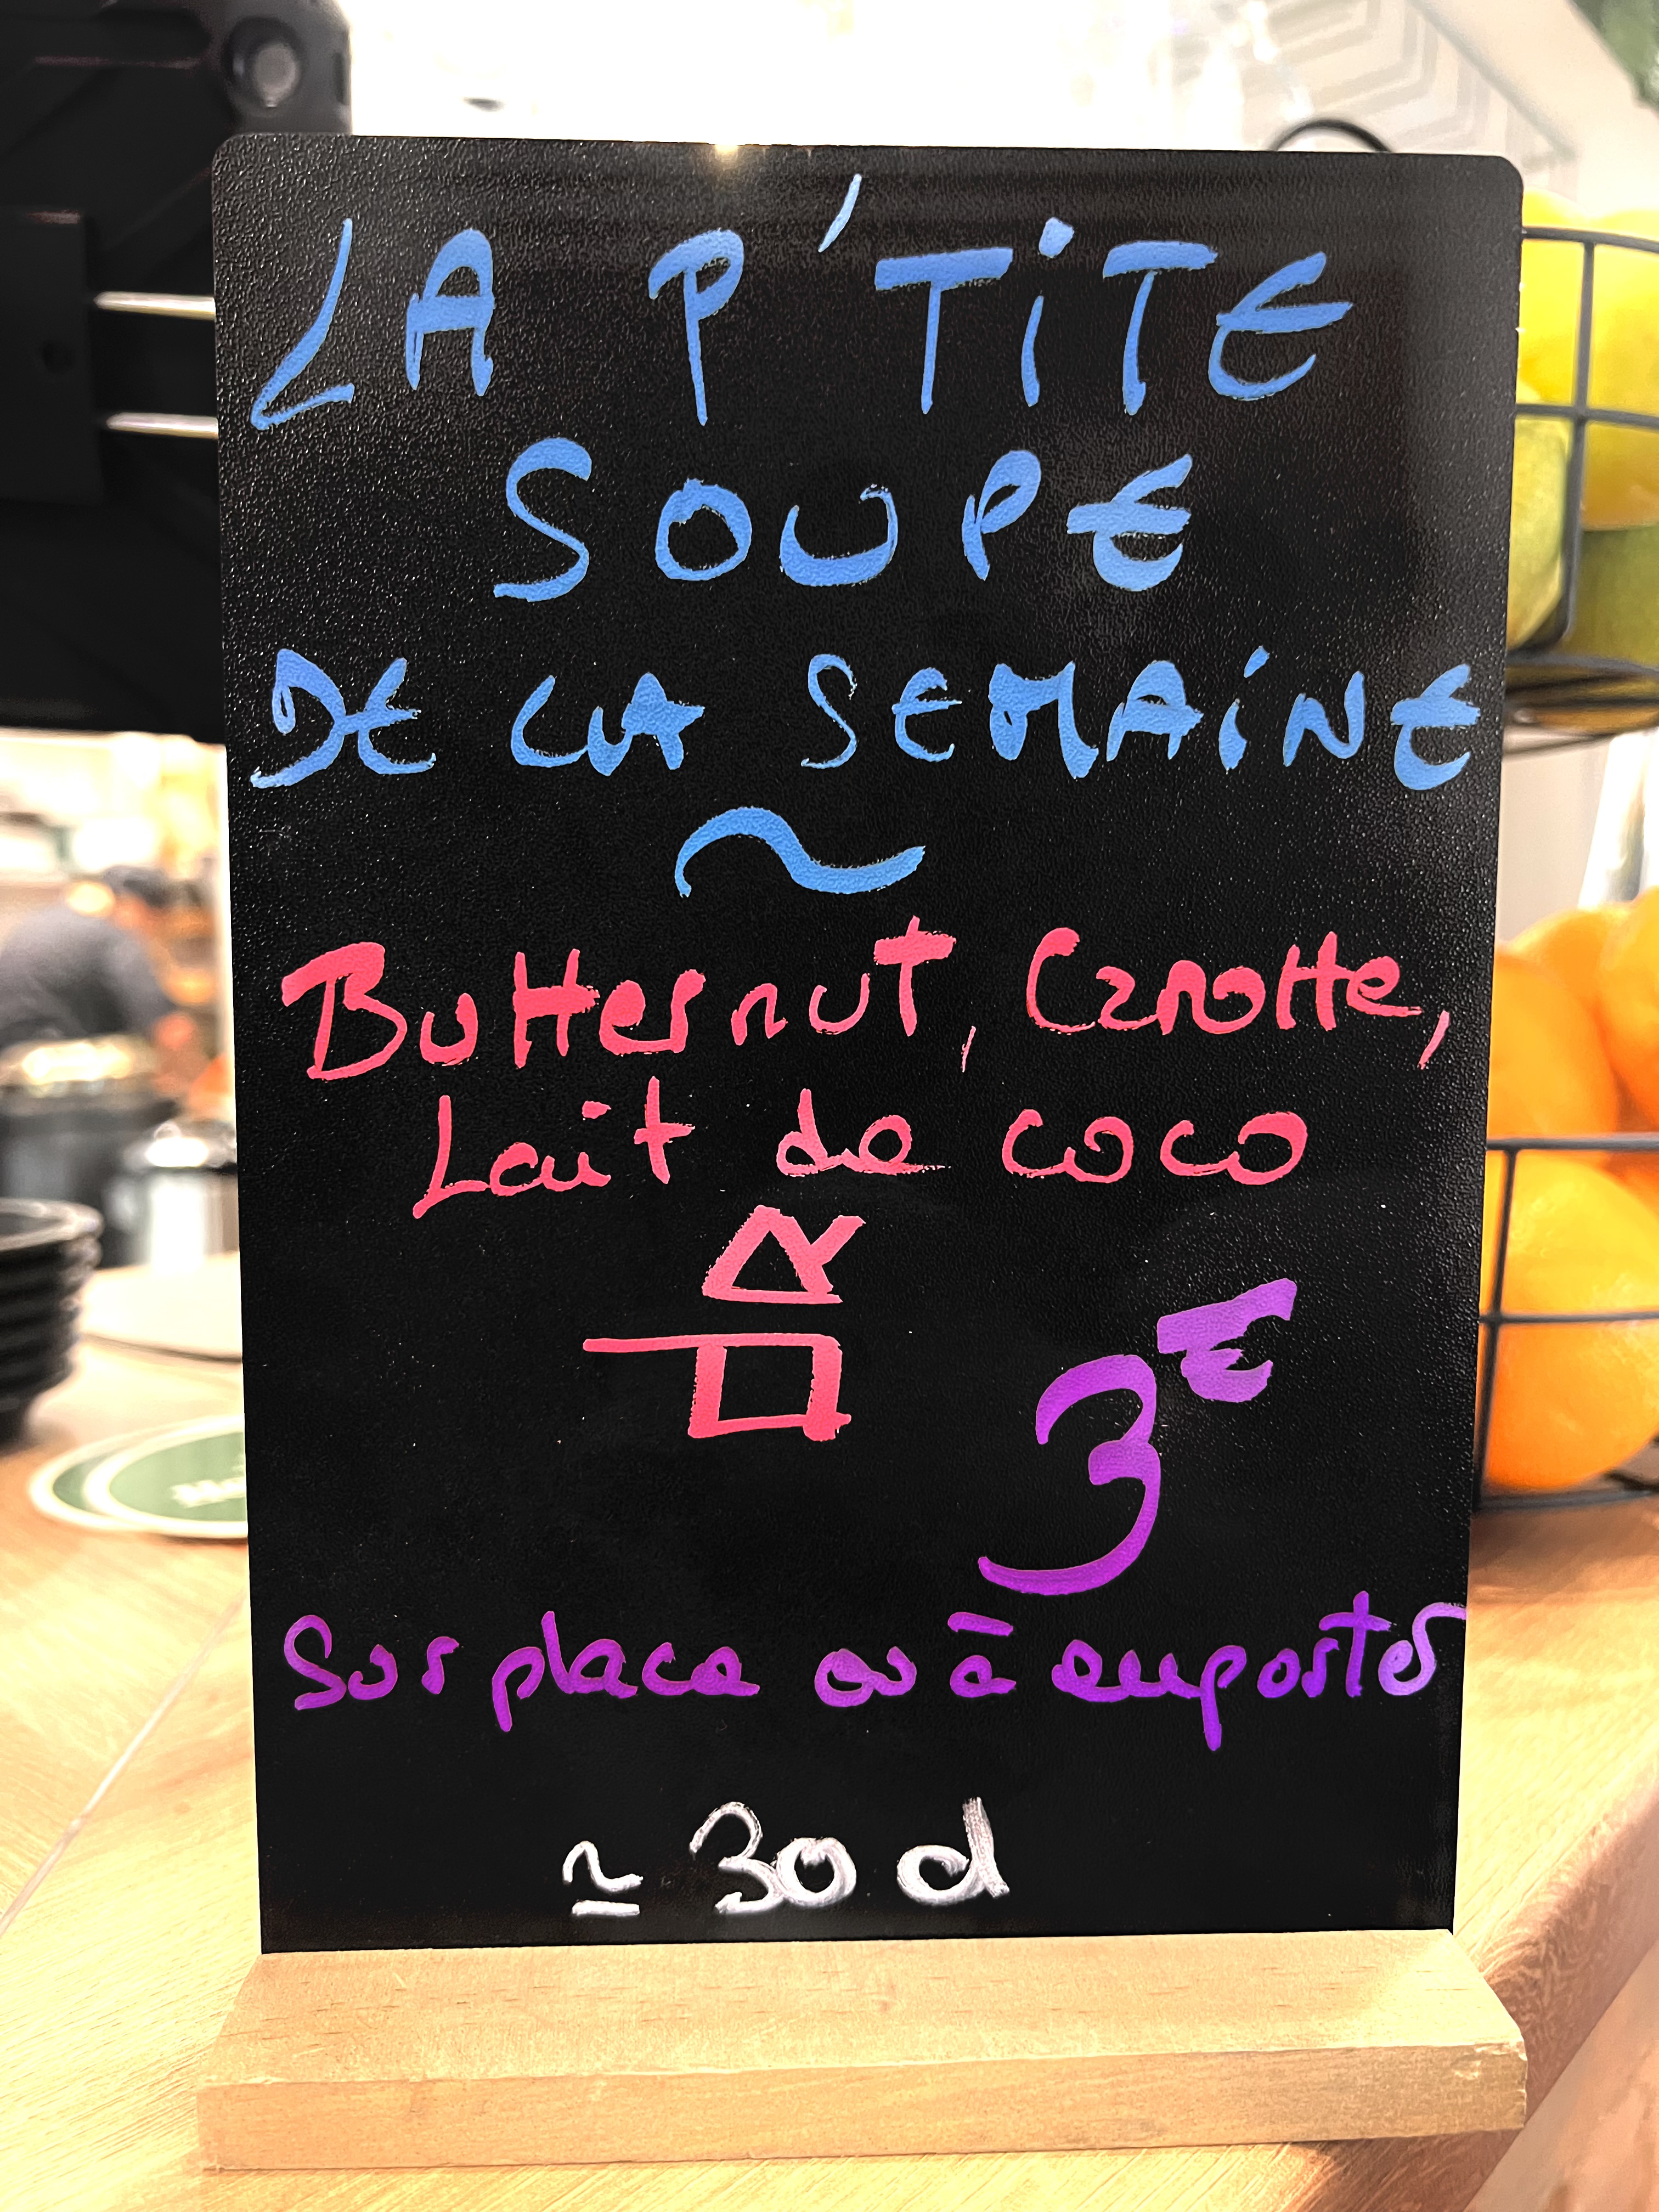 LA P'TiTE
SOUPE
DE LA SEMAiNE
~
Butternut, Carotte,
Lait de coco
3€
Sur place ou à emporter
≃ 30 cl